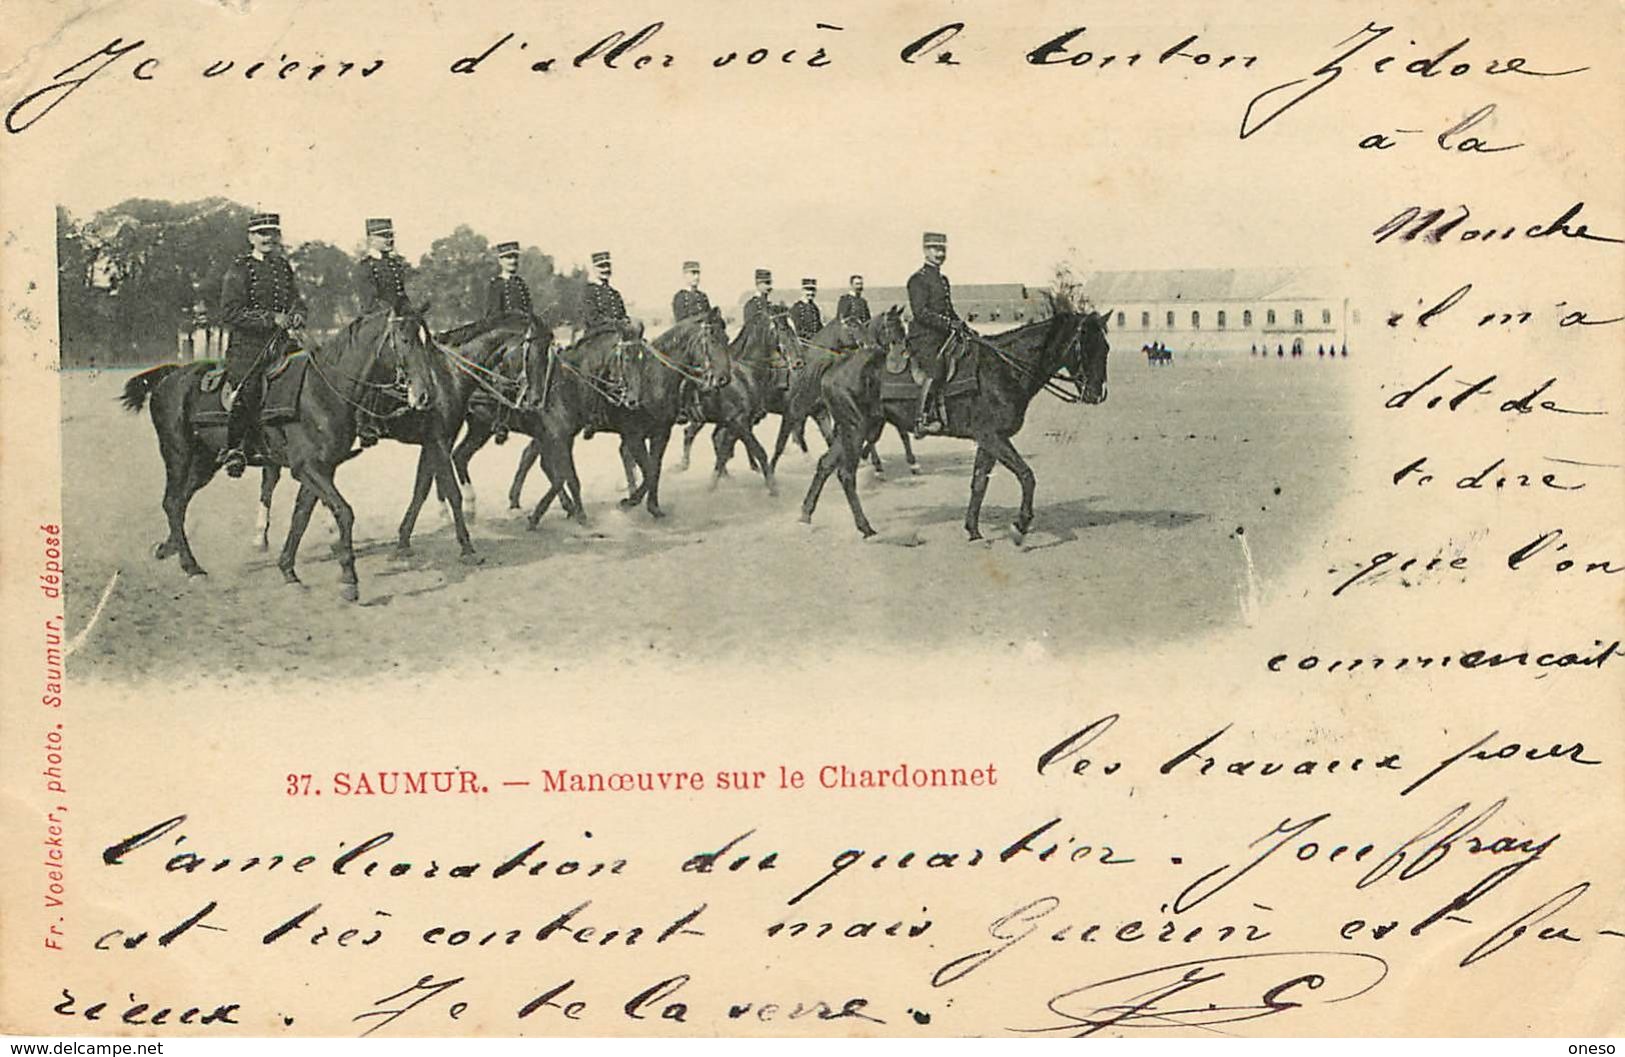 Je viens d'aller voir le tonton Zidore
à la
Mouche
il m'a
dit de
te dire
que l'on
commençait
les travaux pour
37. SAUMUR. — Manœuvre sur le Chardonnet
l'amélioration du quartier. Jouffray
est très content mais Guérin est fu-
rieux. Je te la serre. J. G
Fr. Voelcker, photo. Saumur, déposé
www.delcampe.net
oneso